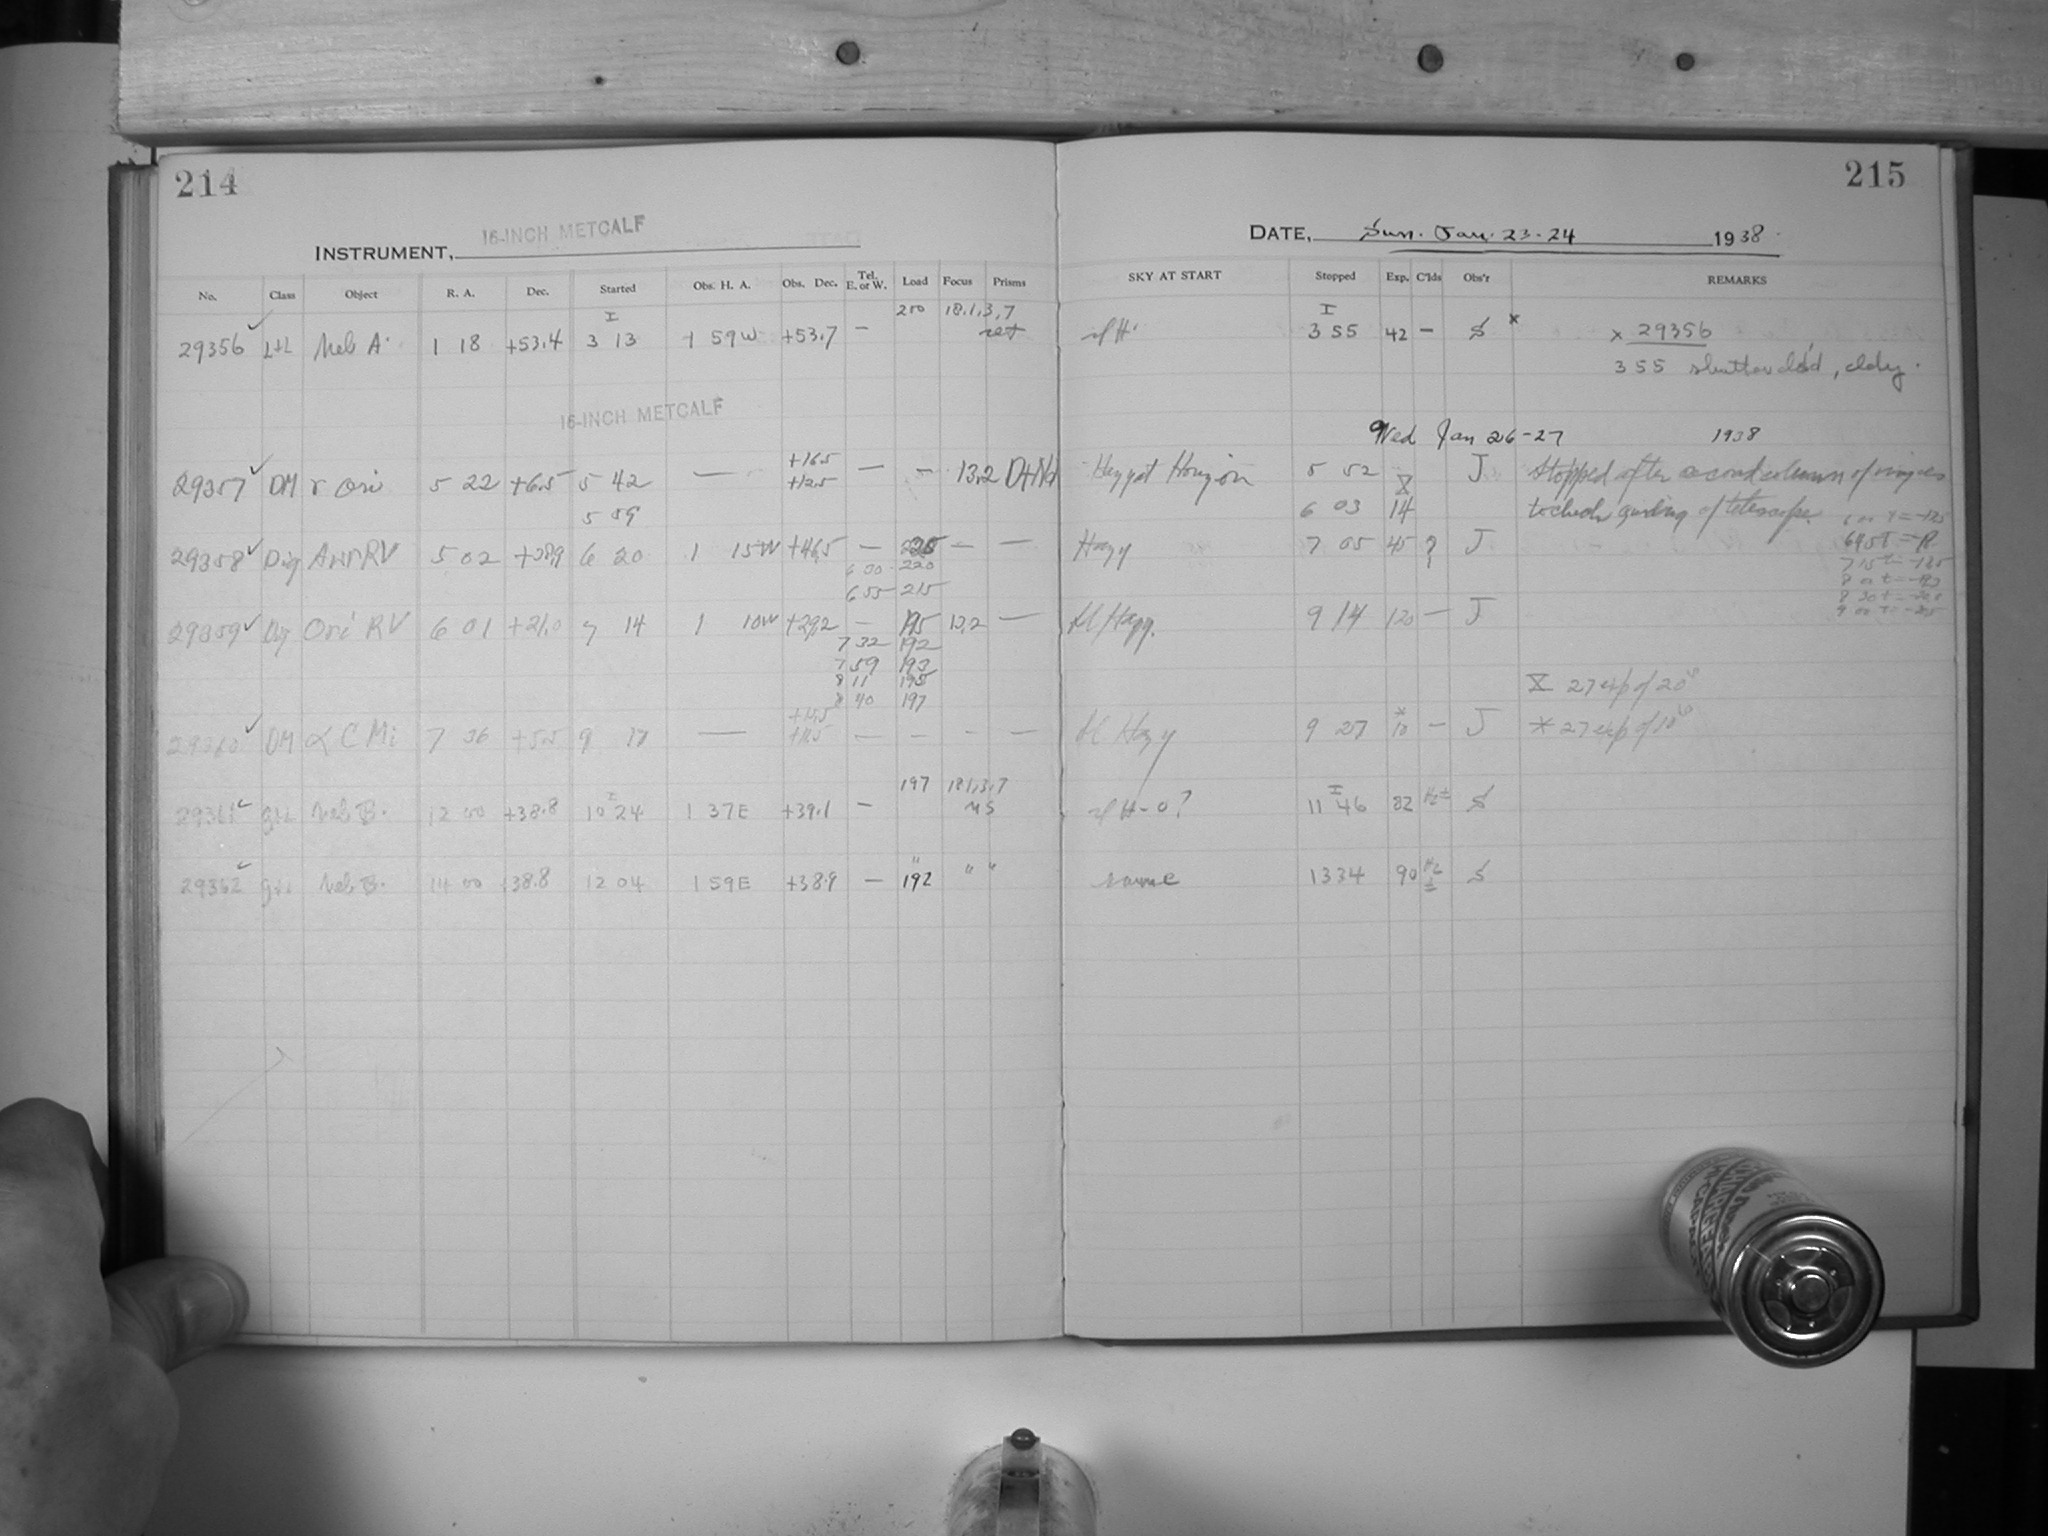 214
INSTRUMENT, 16-INCH METCALF
No. Class Object R. A. Dec. Started Obs. H. A. Obs. Dec. Tel. E. or W. Load Focus Prisms
200 18.1,3,7
29356 L+L Neb A. 1 18 +53.4 3 13 1 59W +53.7 —
16-INCH METCALF
29357 DM γ Ori 5 22 +6.5 5 42 — +16.5 — – 13,2
+12.5
5 59
29358 5 02 6 20 1 15W +46.5 — — —
6 30 220
6 55 215
29359 Ori RV 6 01 +21.0 7 14 1 10W +29.2 — 195 13,2 —
7 32 192
7 59 193
8 11 195
8 40 197
29360 DM α C Mi 7 36 +5.5 9 17 — — – – —
197 18.1,3,7
29361 Neb B. 12 00 +38.8 10 24 1 37E +39.1 —
29362 Neb B. 14 00 +38.8 12 04 1 59E +38.9 — 192 " "
215
DATE, Sun. Jan. 23-24 1938.
SKY AT START Stopped Exp. C'lds Obs'r REMARKS
I
sl H. 3 55 42 – S x x 29356
3 55 shutter clos'd, cldy.
Wed Jan 26-27 1938
Horizon 5 52 X J Stopped after second column of images
6 03 14 to check guiding of telescope
Hazy 7 05 45 ? J
Sl Hazy. 9 14 120 — J
X 27 exp of 20s
Sl Hazy 9 27 10 — J * 27 exp of 10s
sl H-0? 11 46 82 Hz± S
same 13 34 90 Hz ± S